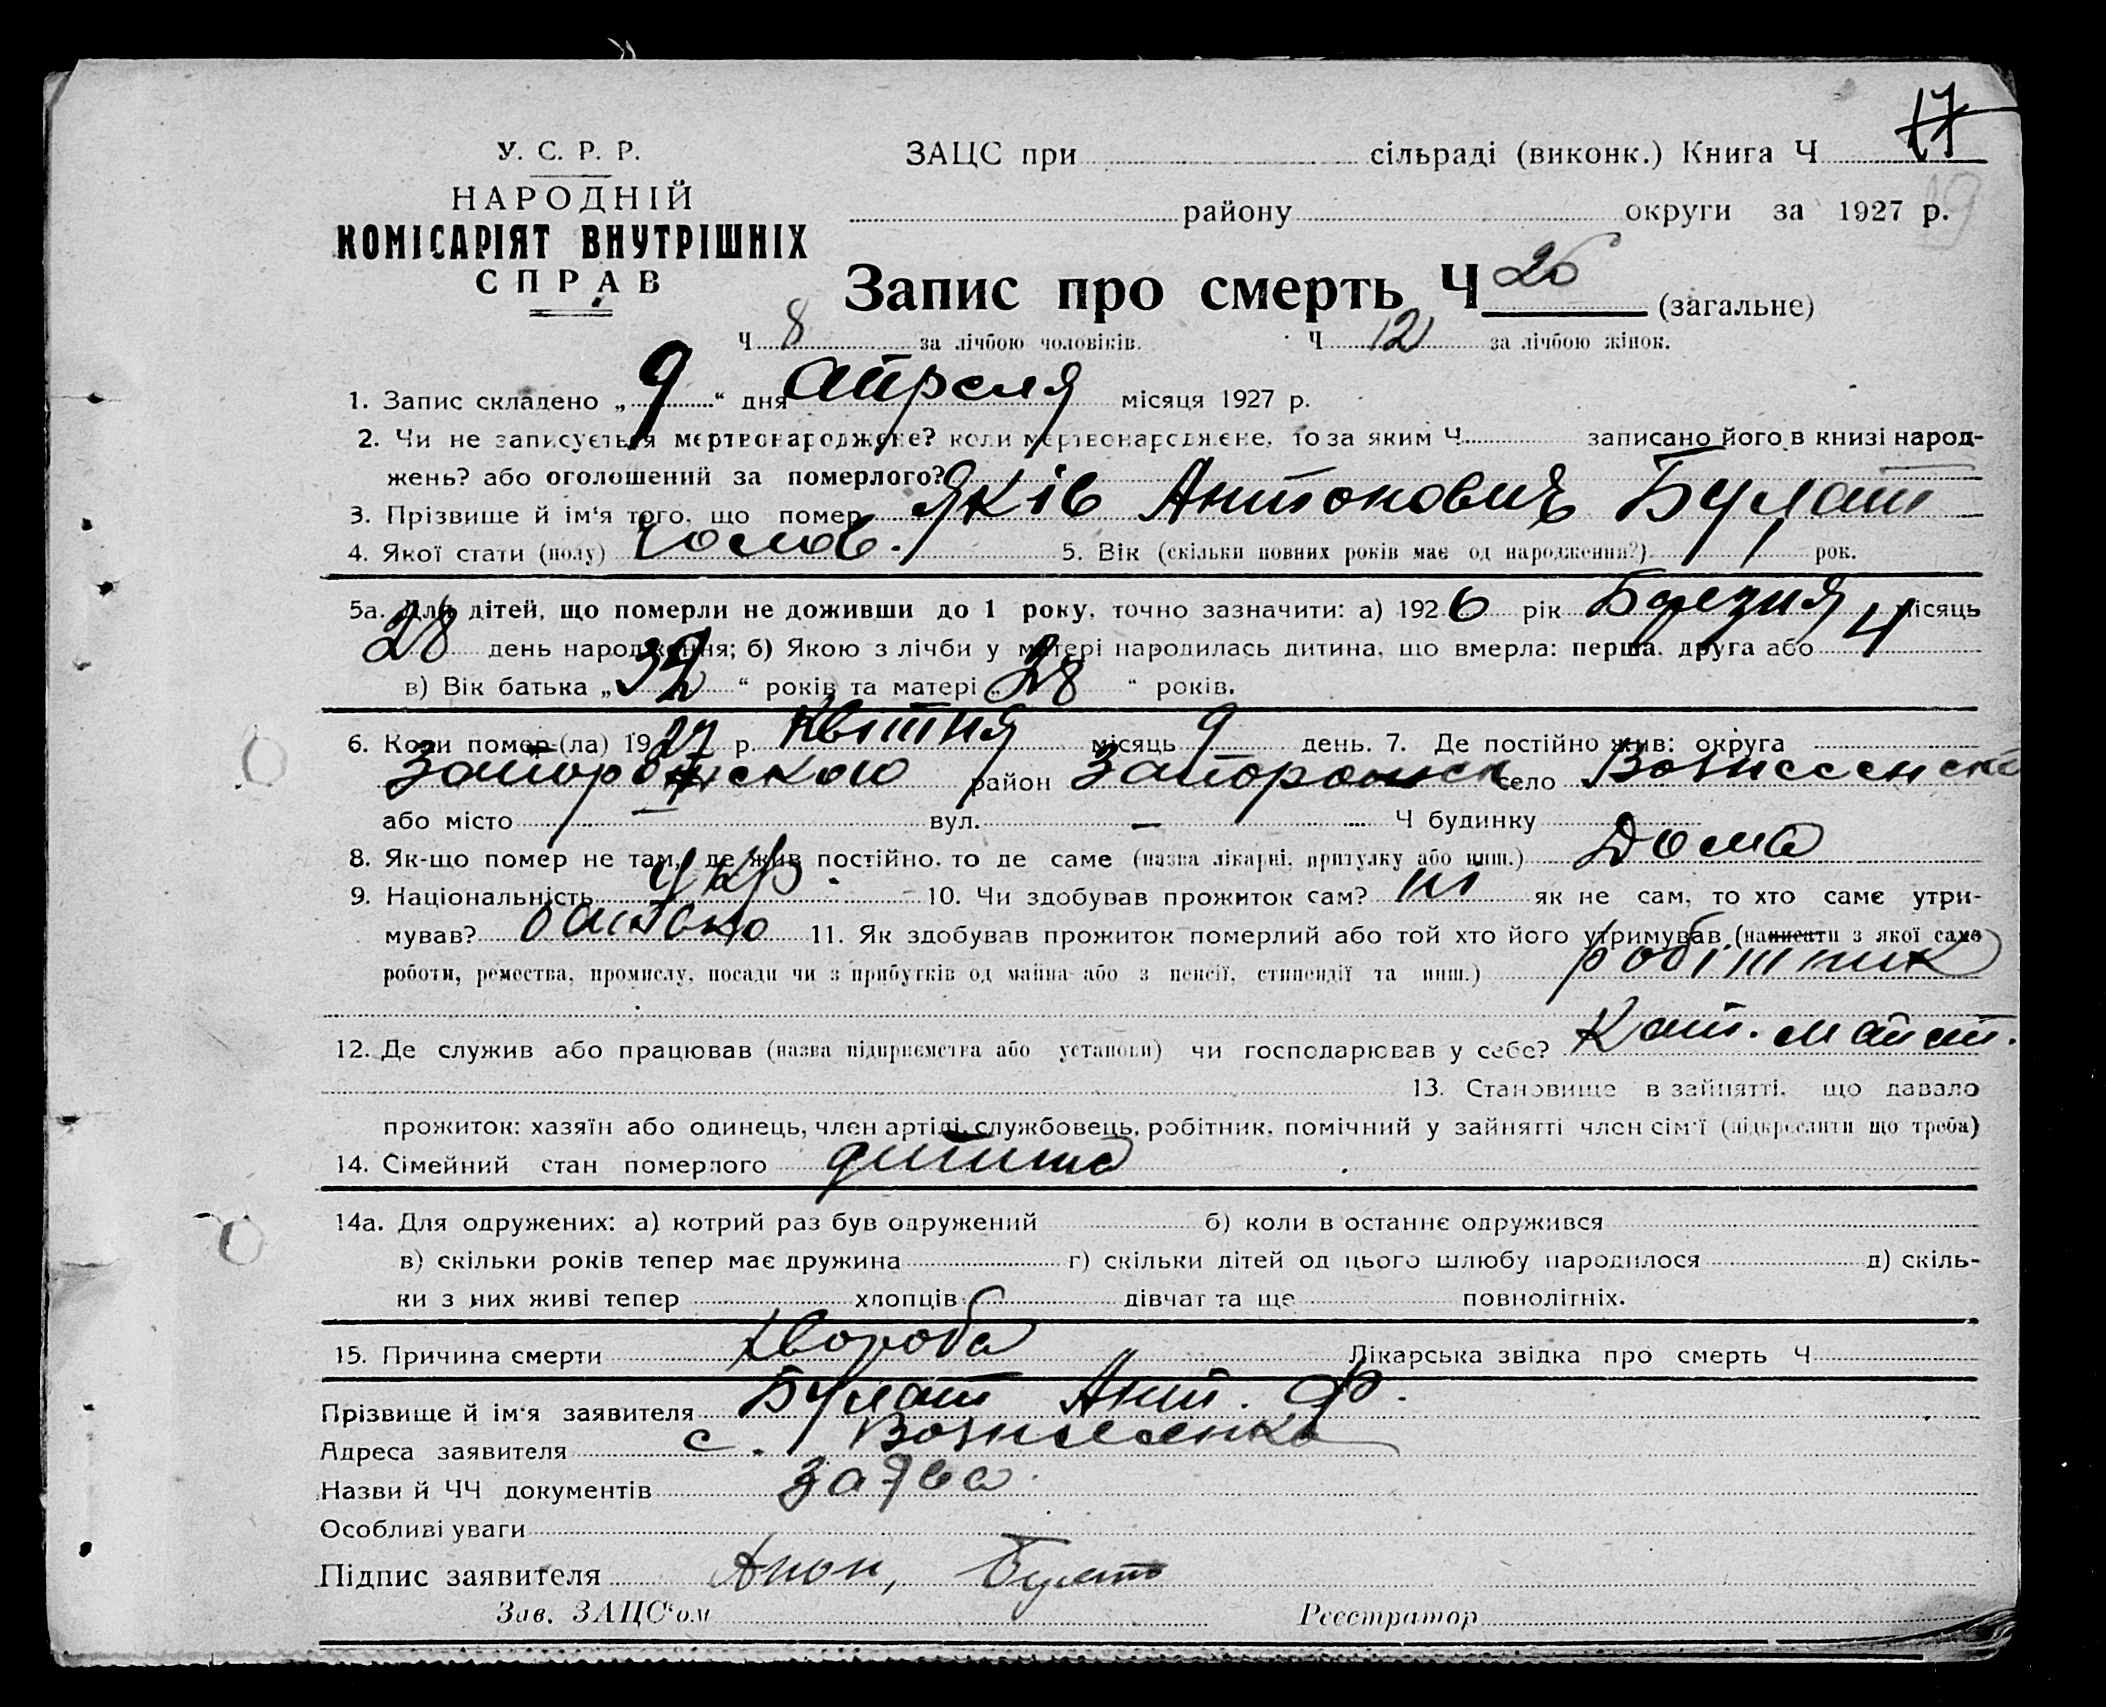 17
У. С. Р. Р.
ЗАЦС при сільраді (виконк.) Книга Ч
НАРОДНІЙ
району округи за 1927 р.
19
КОМІСАРІЯТ ВНУТРІШНІХ
СПРАВ
Запис про смерть Ч 20 (загальне)
Ч 8 за лічбою чоловіків. Ч 12 за лічбою жінок.
1. Запис складено „ 9 “ дня Апреля місяця 1927 р.
2. Чи не записується мертвонароджене? коли мертвонароджене, то за яким Ч записано його в книзі народ-
жень? або оголошений за померлого?
3. Прізвище й ім'я того, що помер Яків Антонович Булат
4. Якої стати (полу) чолов. 5. Вік (скільки повних років має од народження?) 1 рок.
5а. Для дітей, що померли не доживши до 1 року, точно зазначити: а) 1926 рік Березня місяць
28 день народження; б) Якою з лічби у матері народилась дитина, що вмерла: перша, друга або 4
в) Вік батька „ 32 “ років та матері „ 28 “ років.
6. Коли помер (ла) 1927 р. Квітня місяць 9 день. 7. Де постійно жив: округа
Запоріжскою район Запорожск село Вознесенска
або місто — вул. — Ч будинку
8. Як-що помер не там, де жив постійно, то де саме (назва лікарні, притулку або инш.) Дома
9. Національність Укр. 10. Чи здобував прожиток сам? ні як не сам, то хто саме утри-
мував? батько 11. Як здобував прожиток померлий або той хто його утримував (написати з якої само
роботи, ремества, промислу, посади чи з прибутків од майна або з пенсії, стипендії та инш.) робітник
12. Де служив або працював (назва підприємства або установи) чи господарював у себе?
13. Становище в зайнятті, що давало
прожиток: хазяїн або одинець, член артілі, службовець, робітник, помічний у зайнятті член сім'ї (підкреслити що треба)
14. Сімейний стан померлого дитина
14а. Для одружених: а) котрий раз був одружений б) коли в останнє одружився
в) скільки років тепер має дружина г) скільки дітей од цього шлюбу народилося д) скіль-
ки з них живі тепер хлопців дівчат та ще повнолітніх.
15. Причина смерти хвороба Лікарська звідка про смерть Ч
Прізвище й ім'я заявителя Булат Ант. Ф.
Адреса заявителя с. Вознесенка
Назви й ЧЧ документів заява
Особливі уваги
Підпис заявителя Булат
Зав. ЗАЦС'ом Реєстратор